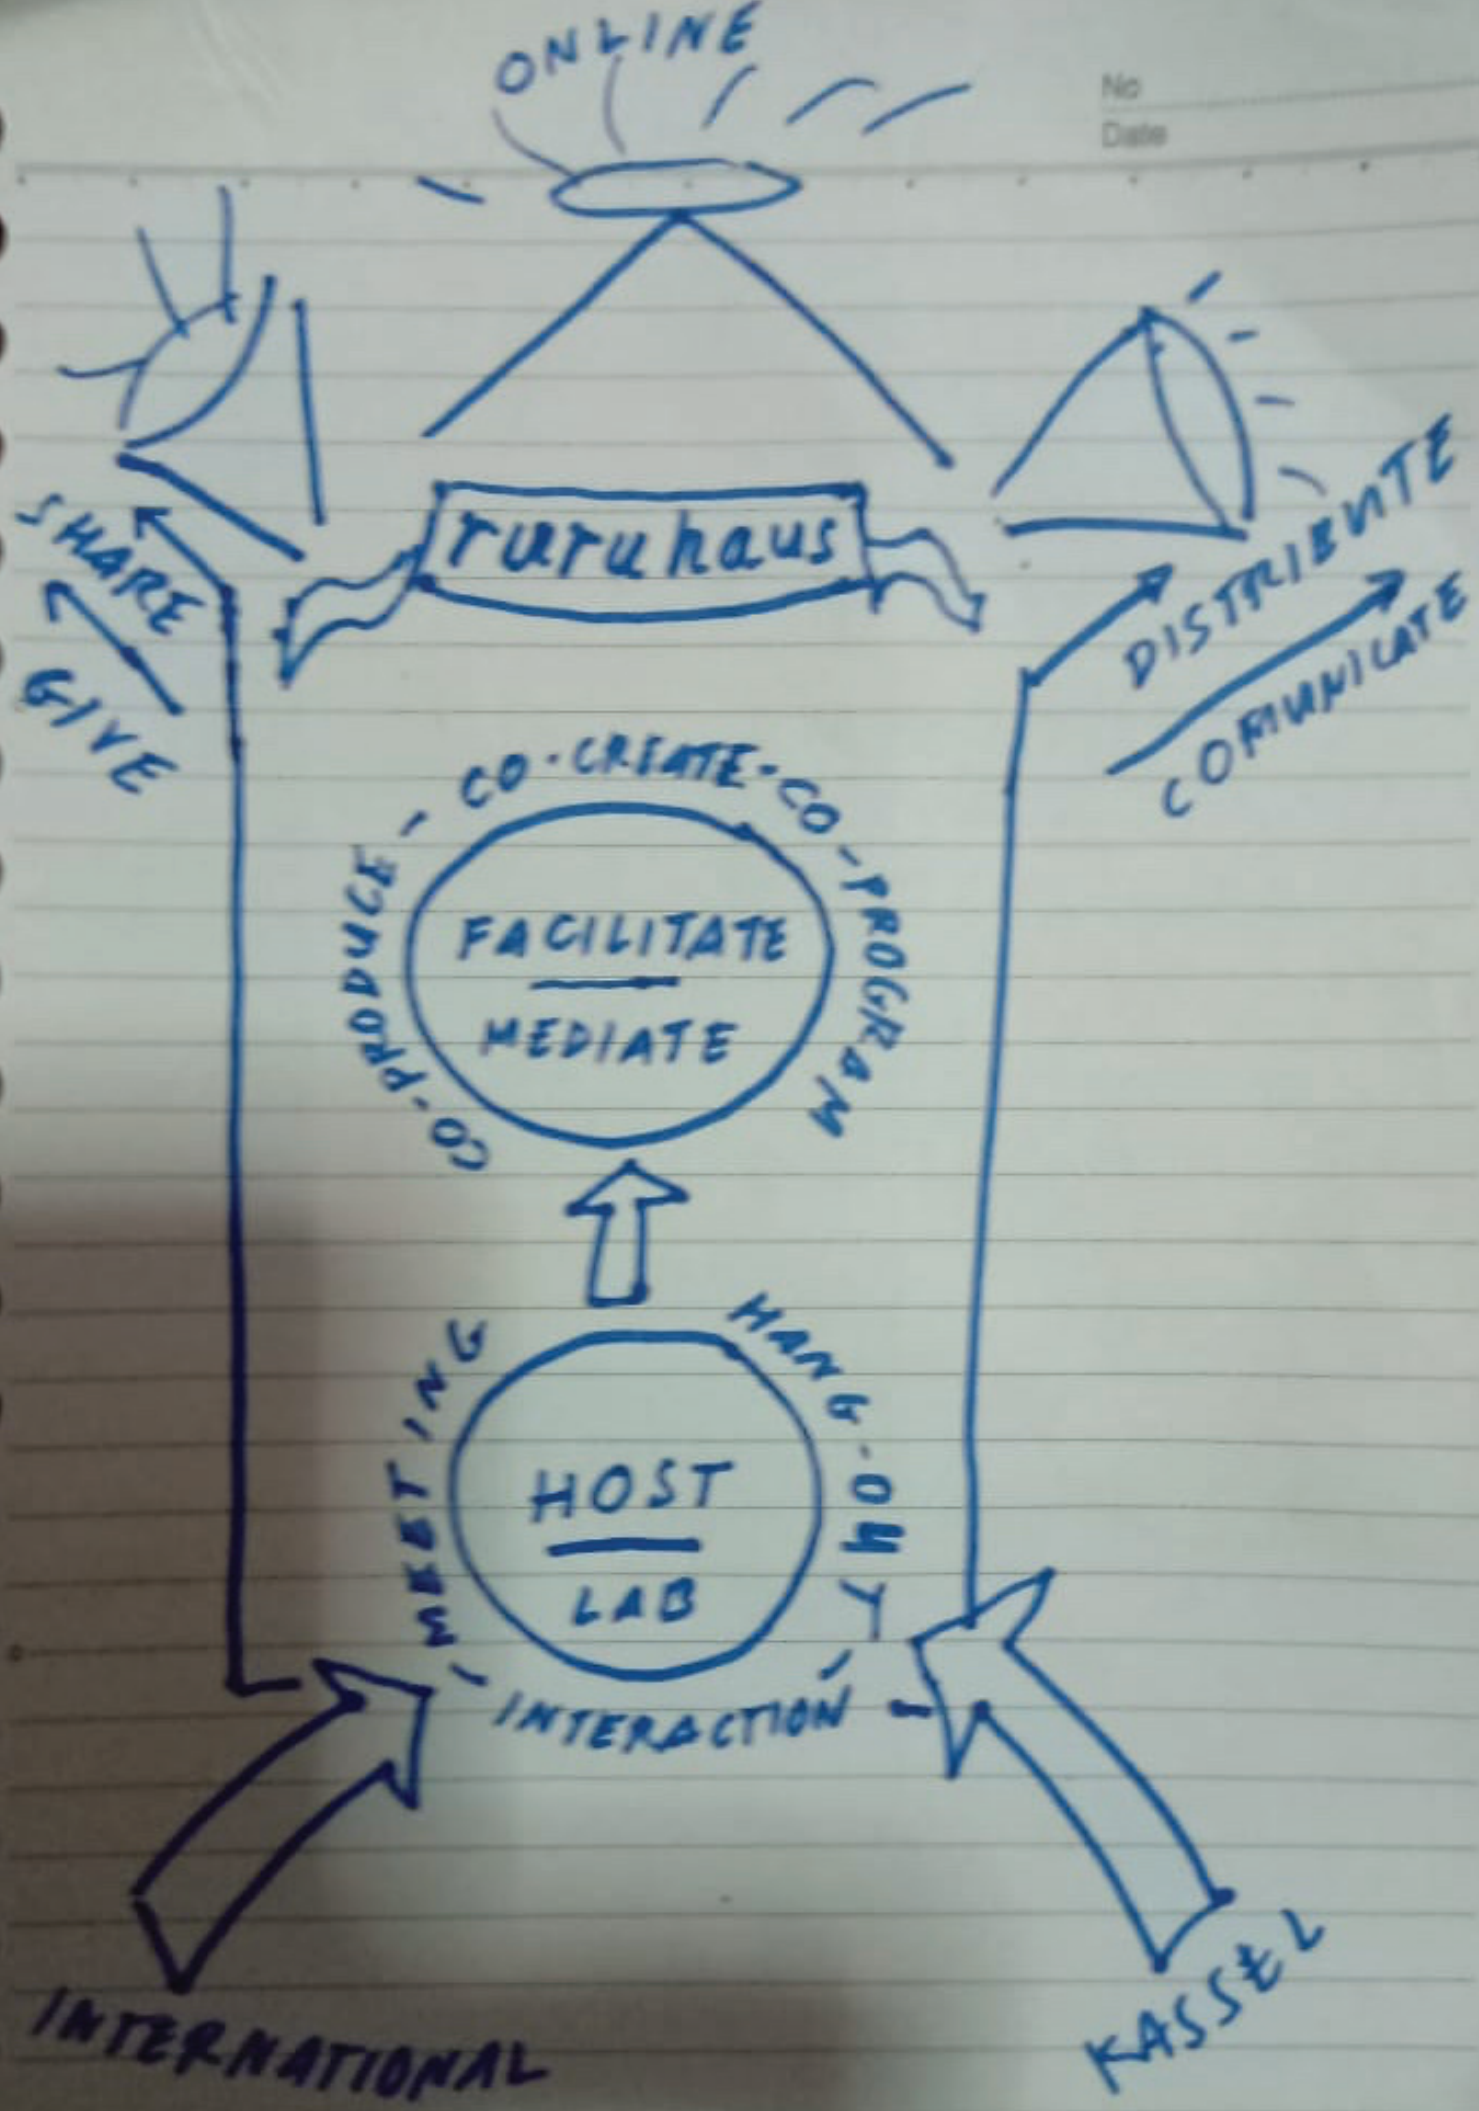 ONLINE
No
Date
SHARE
GIVE
ruruhaus
DISTRIBUTE
COMUNICATE
CO-PRODUCE - CO-CREATE-CO-PROGRAM
FACILITATE
MEDIATE
MEETING
HANG-OUT
HOST
LAB
INTERACTION
INTERNATIONAL
KASSEL